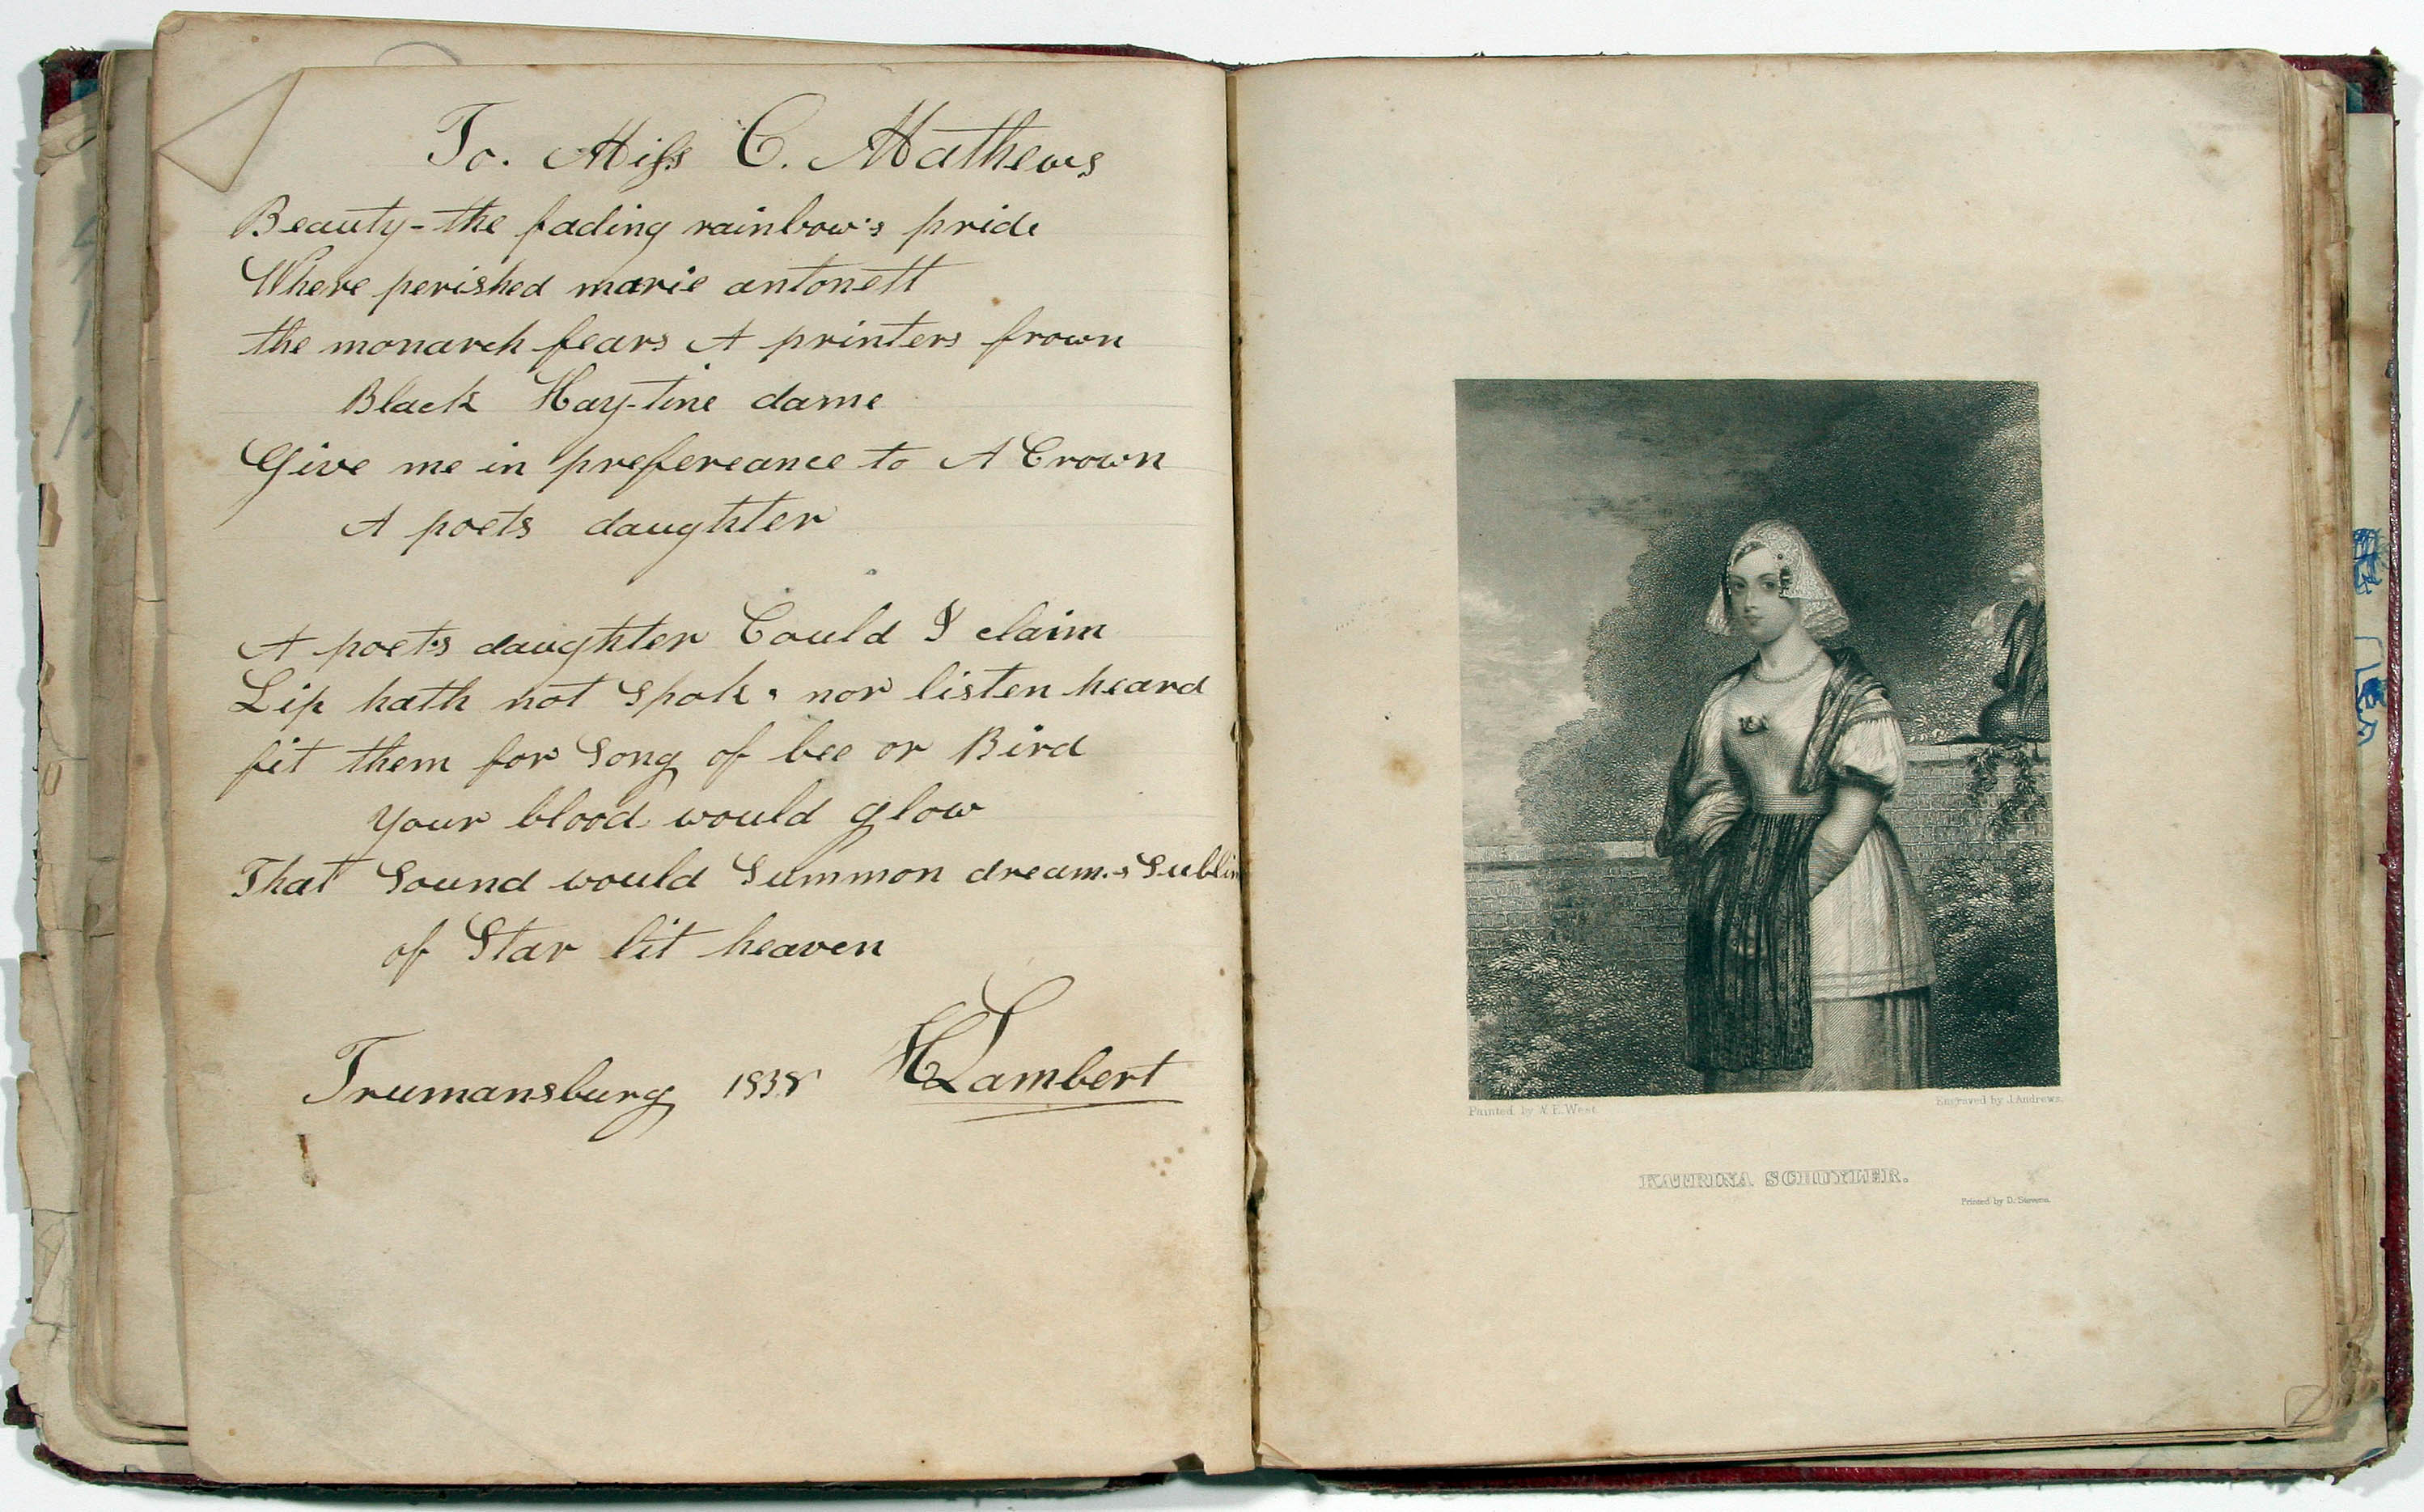 To. Miſs C. Mathews
Beauty - the fading rainbow's pride
Where perished marie antonett
the monarch fears A printers frown
Black Hay-tine dame
Give me in prefereance to A Crown
A poets daughter
A poet's daughter Could I claim
Lip hath not Spok nor listen heard
fit them for Song of bee or Bird
Your blood would glow
That Sound would Summon dreams Sublim
of Star lit heaven
Trumansburg 1838 HLambert
Painted by W. E. West.
Engraved by J. Andrews.
KATRINA SCHUYLER.
Printed by D. Stevens.